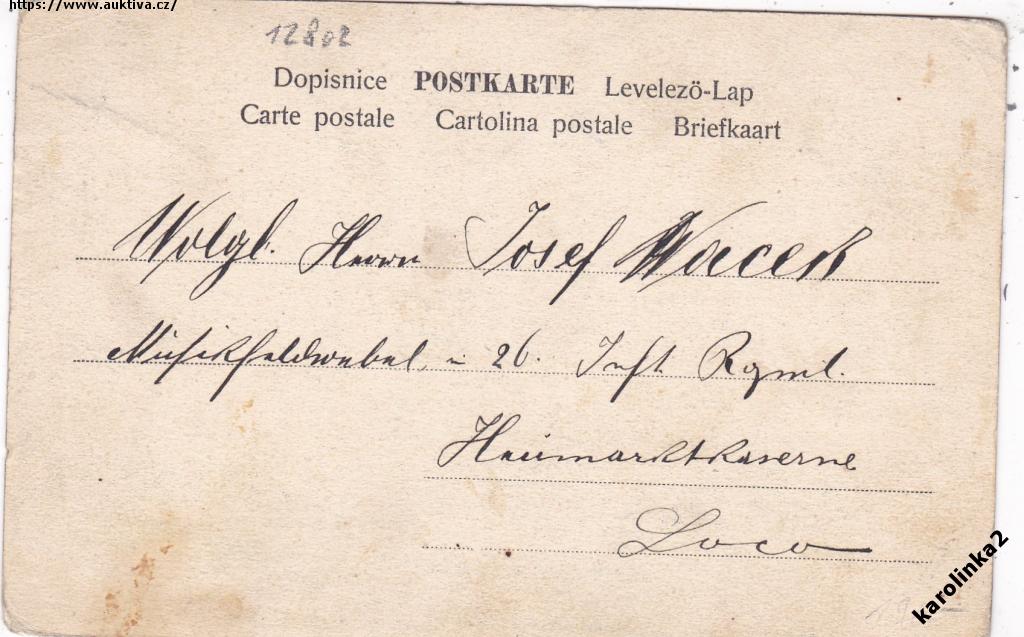 https://www.auktiva.cz/
12802
Dopisnice POSTKARTE Levelező-Lap
Carte postale Cartolina postale Briefkaart
Wolgb. Herrn Josef Wacek
Musikfeldwebel, i 26. Inft Rgmt.
Heumarktkaserne
Loco
karolinka2